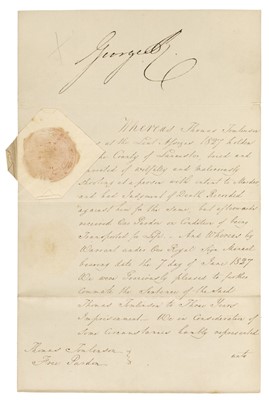 George R.
Whereas Thomas Tomlinson
was at the Lent Assizes 1827 holden
for the County of Leicester tried and
convicted of wilfully and maliciously
shooting at a person with intent to Murder
and had Judgment of Death Recorded
against him for the same but afterwards
received Our Pardon on Condition of being
Transported for Life. And Whereas by
Warrant under Our Royal Sign Manual
bearing date the 7 day of June 1827
We were Graciously pleased to further
commute the Sentence of the said
Thomas Tomlinson to Three Years
Imprisonment. We in Consideration of
some Circumstances humbly represented
unto
Thomas Tomlinson
Free Pardon